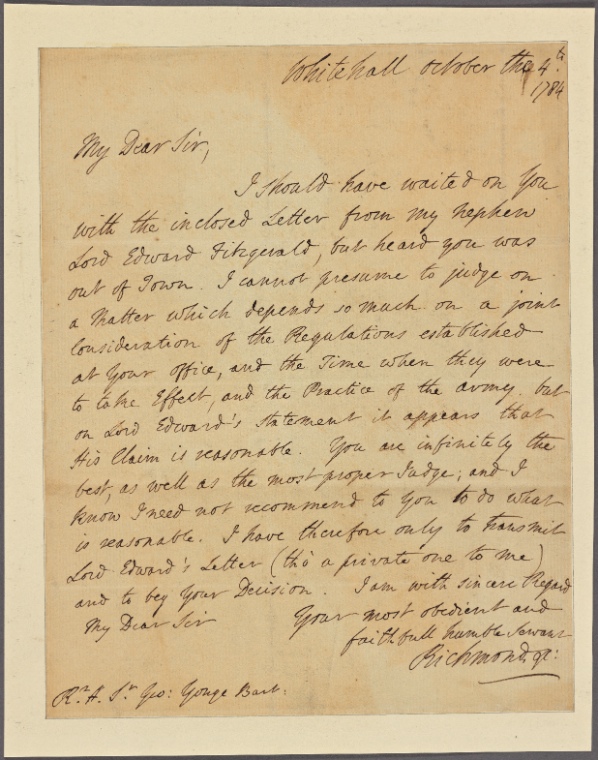 Whitehall October the 4.th
1784
My Dear Sir,
I should have waited on You
with the inclosed Letter from my Nephew
Lord Edward Fitzgerald, but heard you was
out of Town. I cannot presume to judge on
a Matter which depends so much on a joint
Consideration of the Regulations established
at Your office, and the Time when they were
to take Effect, and the Practice of the army. but
on Lord Edward's Statement it appears that
His Claim is reasonable. You are infinitely the
best, as well as the most proper Judge; and I
know I need not recommend to You to do what
is reasonable. I have therefore only to transmit
Lord Edward's Letter (tho' a private one to me)
and to beg Your Decision. I am with sincere Regard
My Dear Sir Your most obedient and
faithfull humble Servant
Richmond, &c:
Rt. H. Sr. Geo: Yonge Bart: